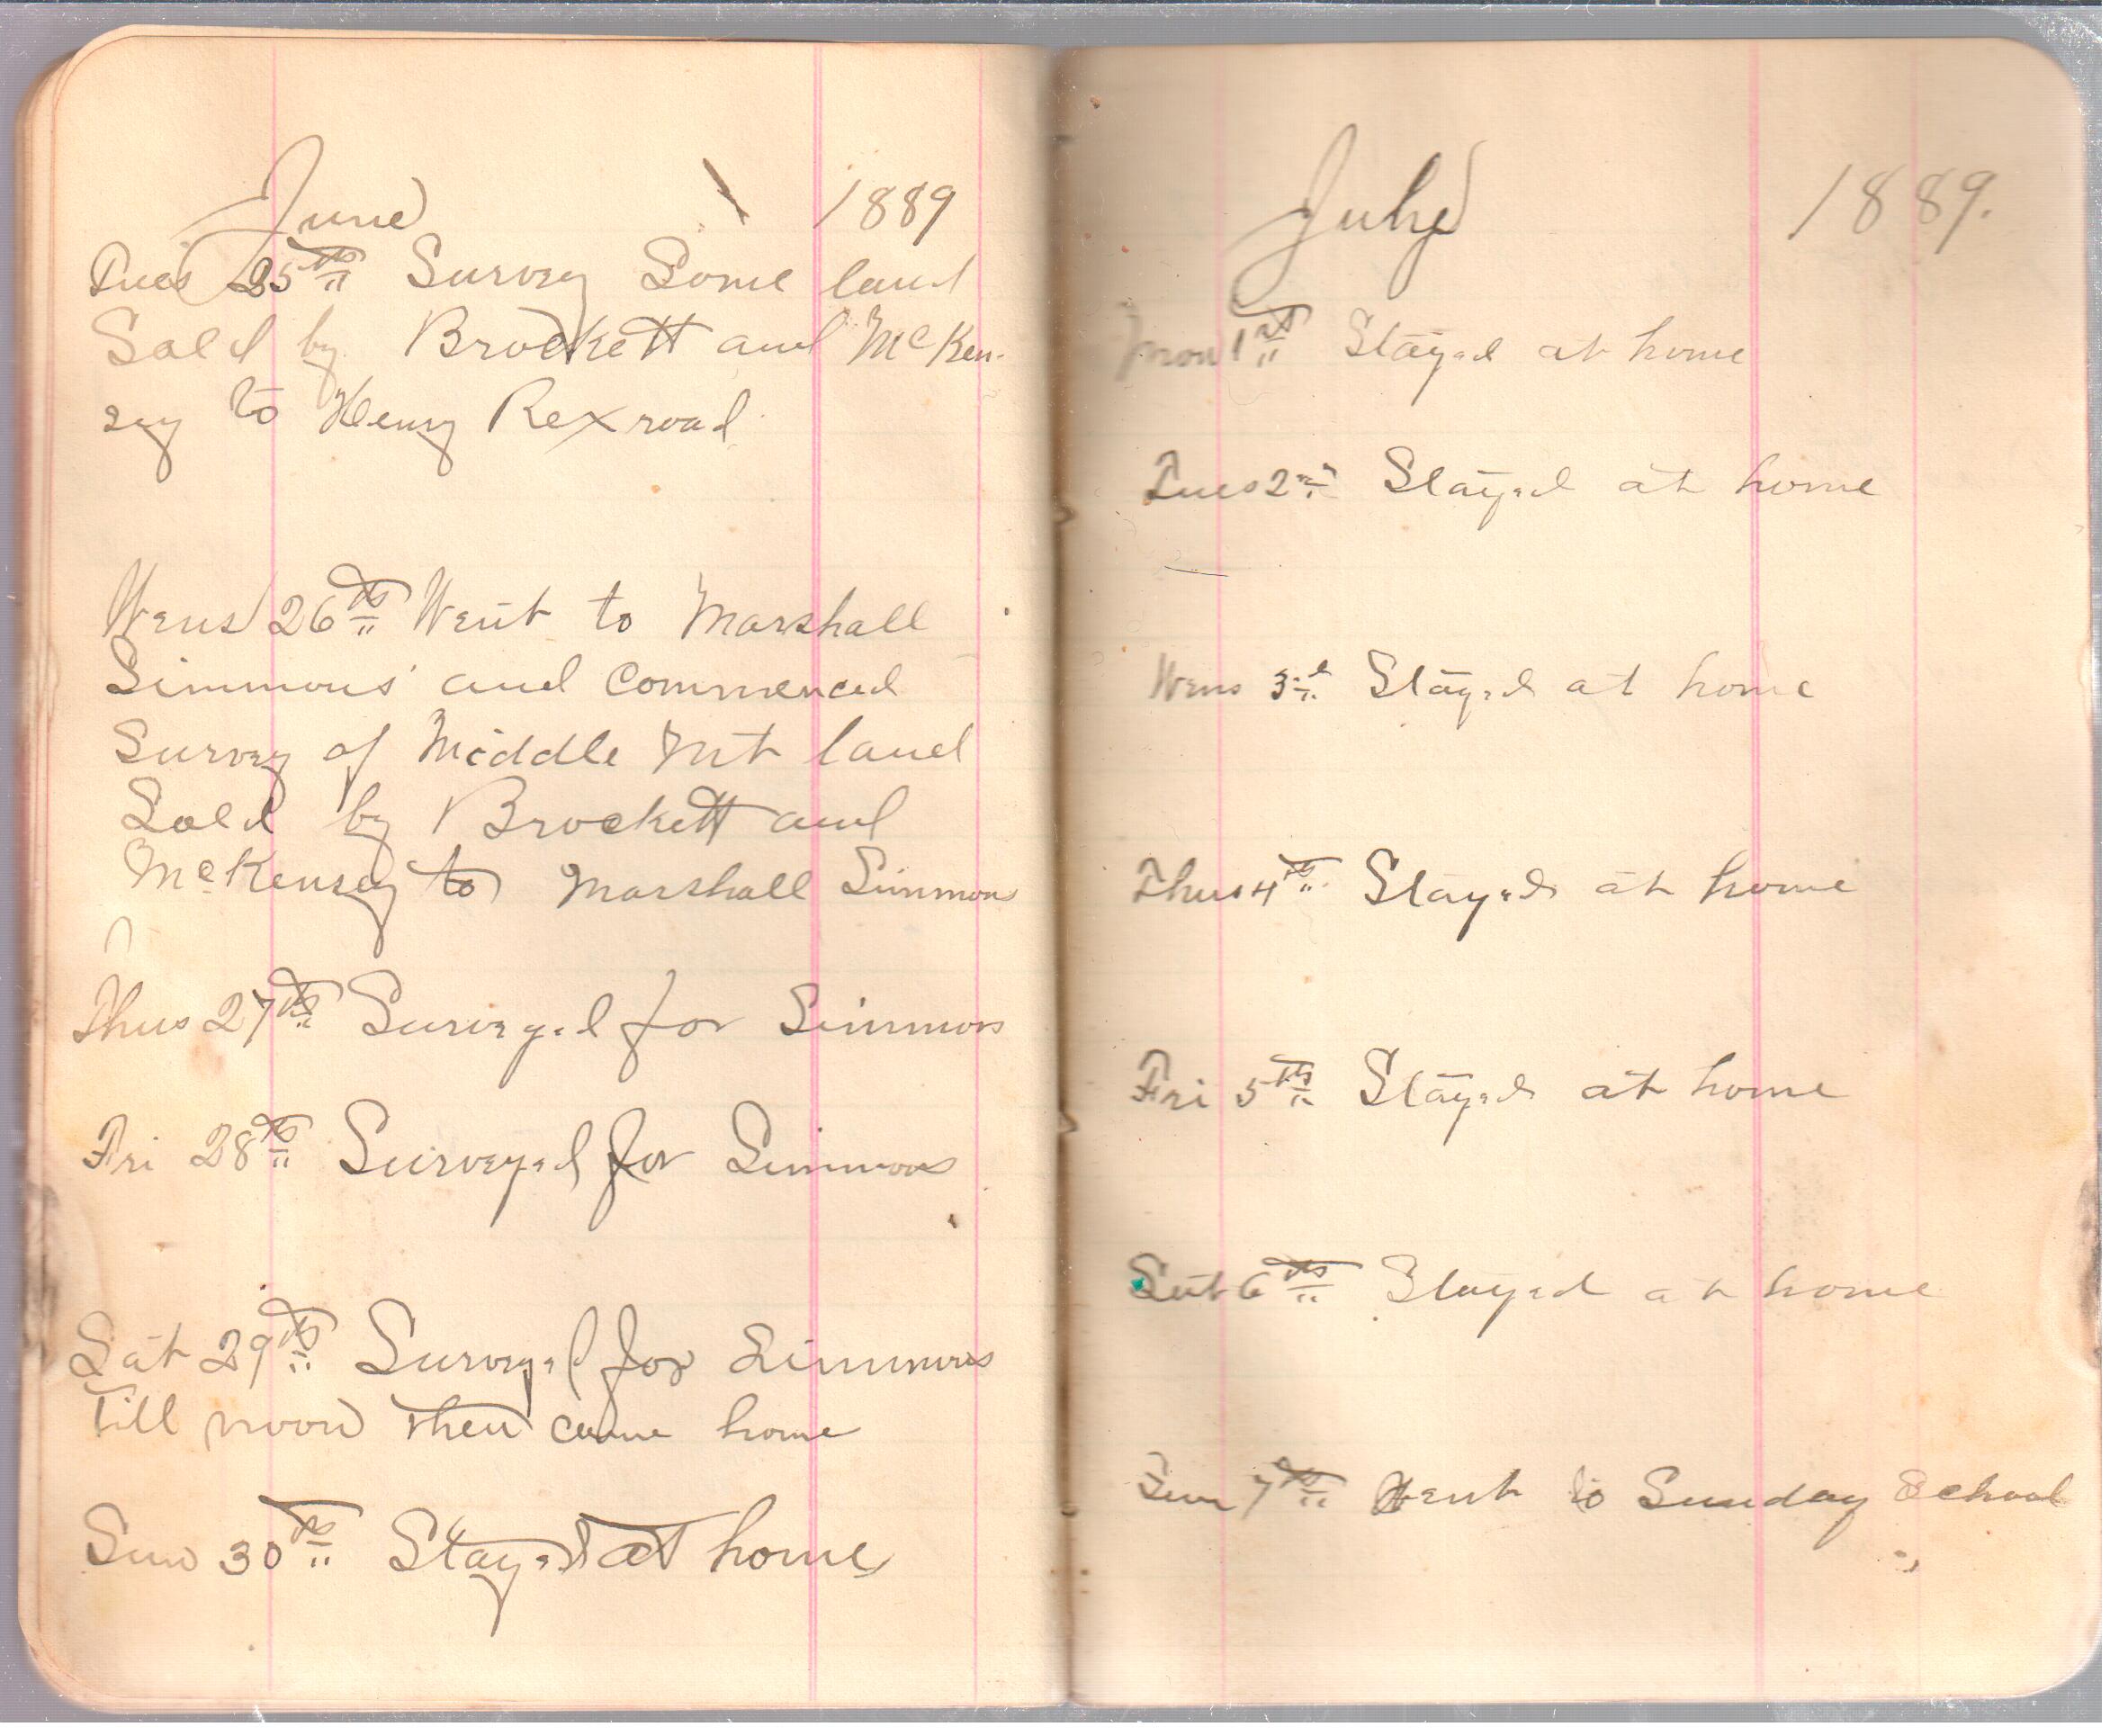 June 1889
Tues 25th Survey Some land
Sold by Brockett and McKen-
zey to Henry Rexroad
Wens 26th Went to Marshall
Simmons and commenced
Survey of Middle Mt land
Sold by Brockett and
McKenzey to Marshall Simmons
Thus 27th Surveyed for Simmons
Fri 28th Surveyed for Simmons
Sat 29th Surveyed for Simmons
till noon then came home
Sun 30th Stayed at home
July 1889.
Mon 1st Stayed at home
Tues 2nd Stayed at home
Wens 3rd Stayed at home
Thus 4th Stayed at home
Fri 5th Stayed at home
Sat 6th Stayed at home
Sun 7th Went to Sunday School